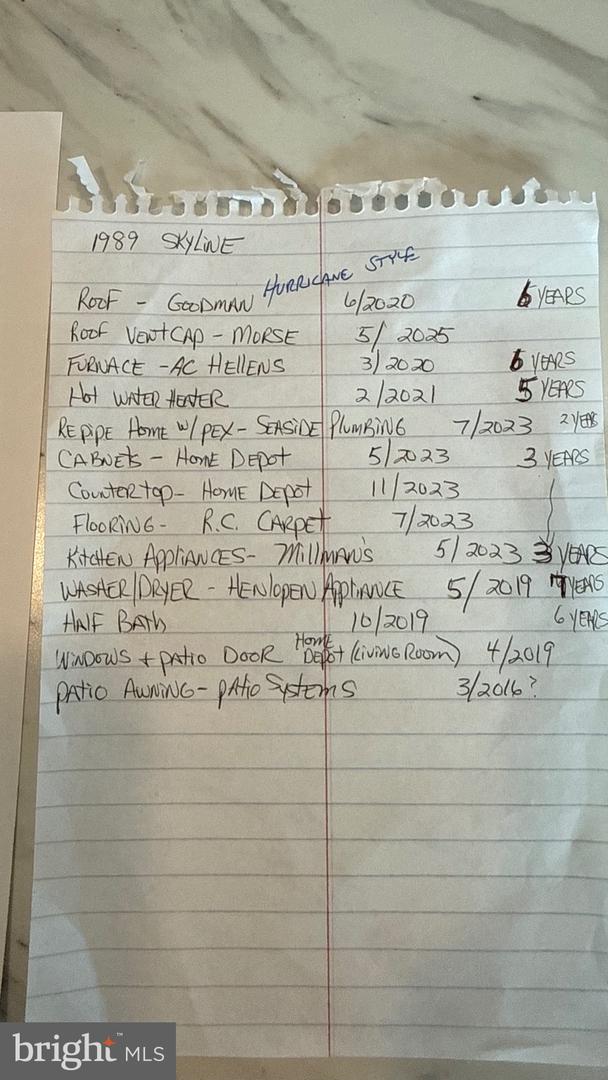 1989 SKYLINE
HURRICANE STYLE
ROOF - GOODMAN 6/2020 6 YEARS
ROOF VENT CAP - MORSE 5/ 2025
FURNACE - AC HELLENS 3/2020 6 YEARS
Hot WATER HEATER 2/2021 5 YEARS
REPIPE HOME W/ PEX - SEASIDE PlUMBING 7/2023 2 YEARS
CABNETS - HOME DEPOT 5/2023 3 YEARS
COUNTERTOP - HOME DEPOT 11/2023
FLOORING - R.C. CARPET 7/2023
KITCHEN APPLIANCES - MIllMAN'S 5/2023 3 YEARS
WASHER/DRYER - HENlOPEN APPLIANCE 5/2019 7 YEARS
HAlF BATH 10/2019 6 YEARS
WINDOWS + PATIO DOOR HOME DEPOT (LIVING ROOM) 4/2019
PATIO AWNING - PATIO SYSTEMS 3/2016?
bright™ MLS